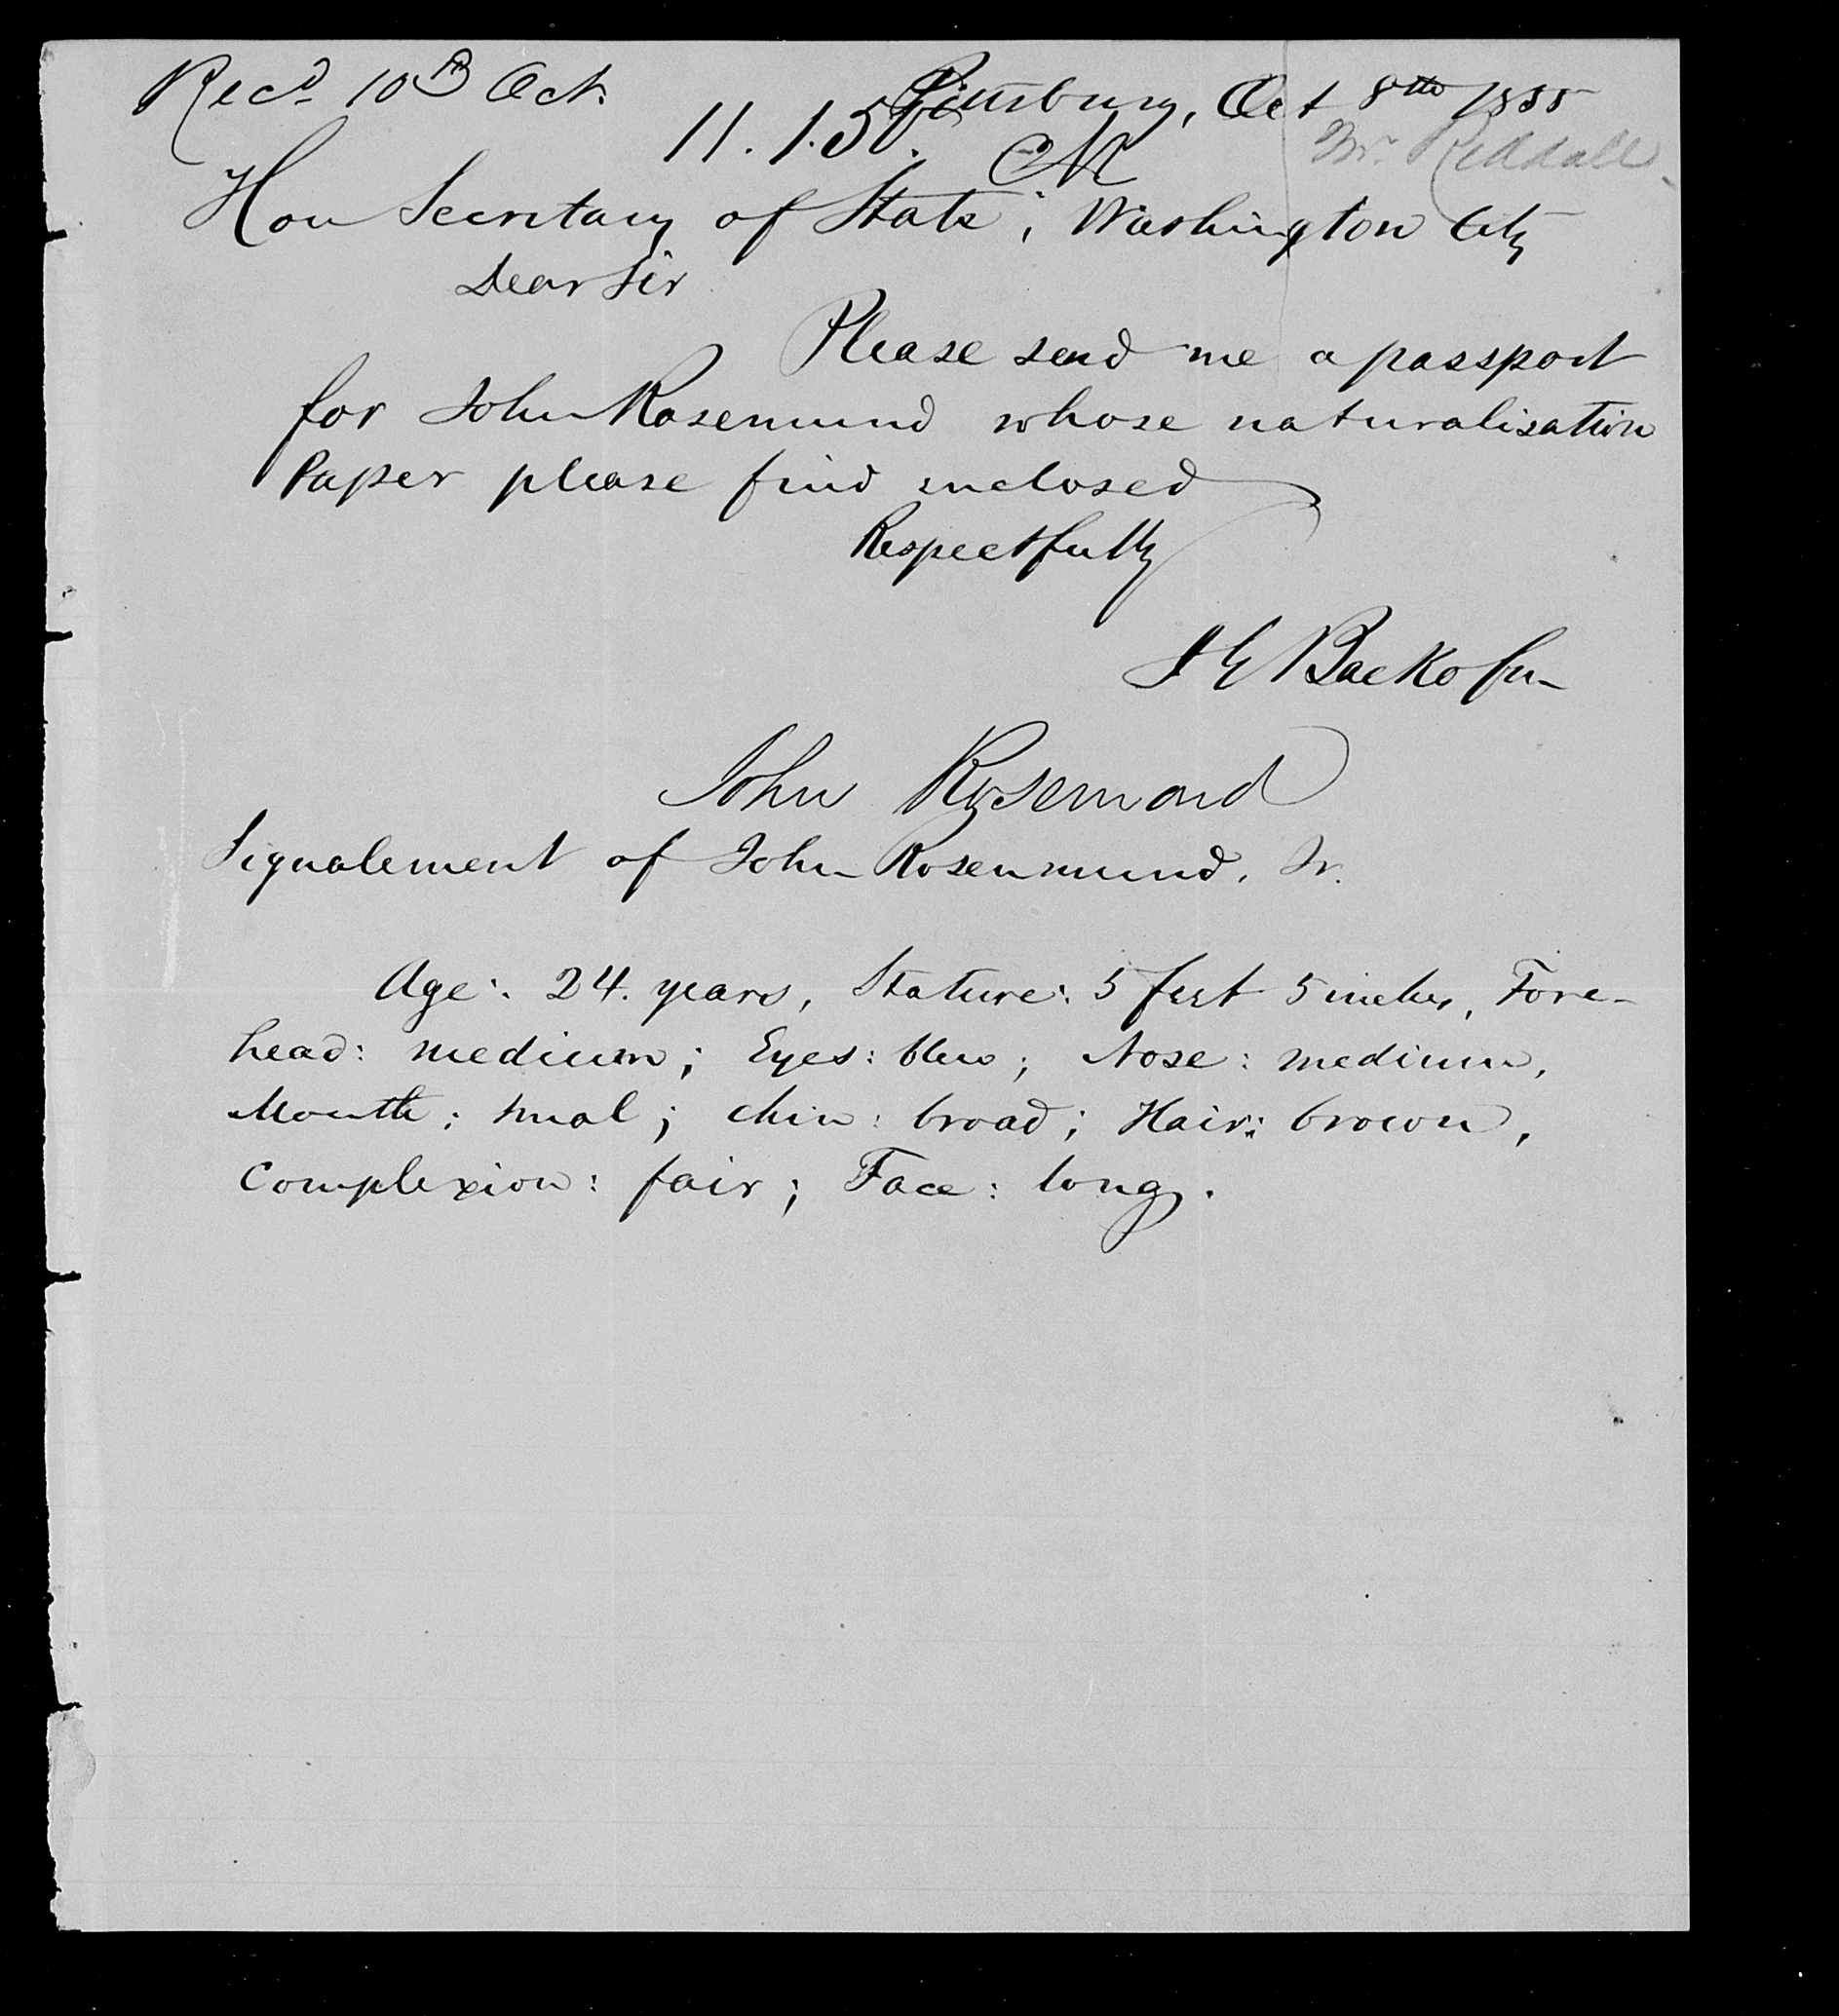 Recd 10th Oct.
Pittsburg, Oct 8th 1855
11.150.
Mr. Riddall
Hon Secretary of State, Washington City
Dear Sir
Please send me a passport
for John Rosemund whose naturalisation
Paper please find inclosed
Respectfully
Backofen
John Rosemond
Signalement of John Rosenmund, Jr.
Age: 24. years, Stature: 5 feet 5 inches, Fore-
head: medium; Eyes: blue; Nose: medium,
Mouth: smal; chin: broad; Hair: brown,
Complexion: fair; Face: long.